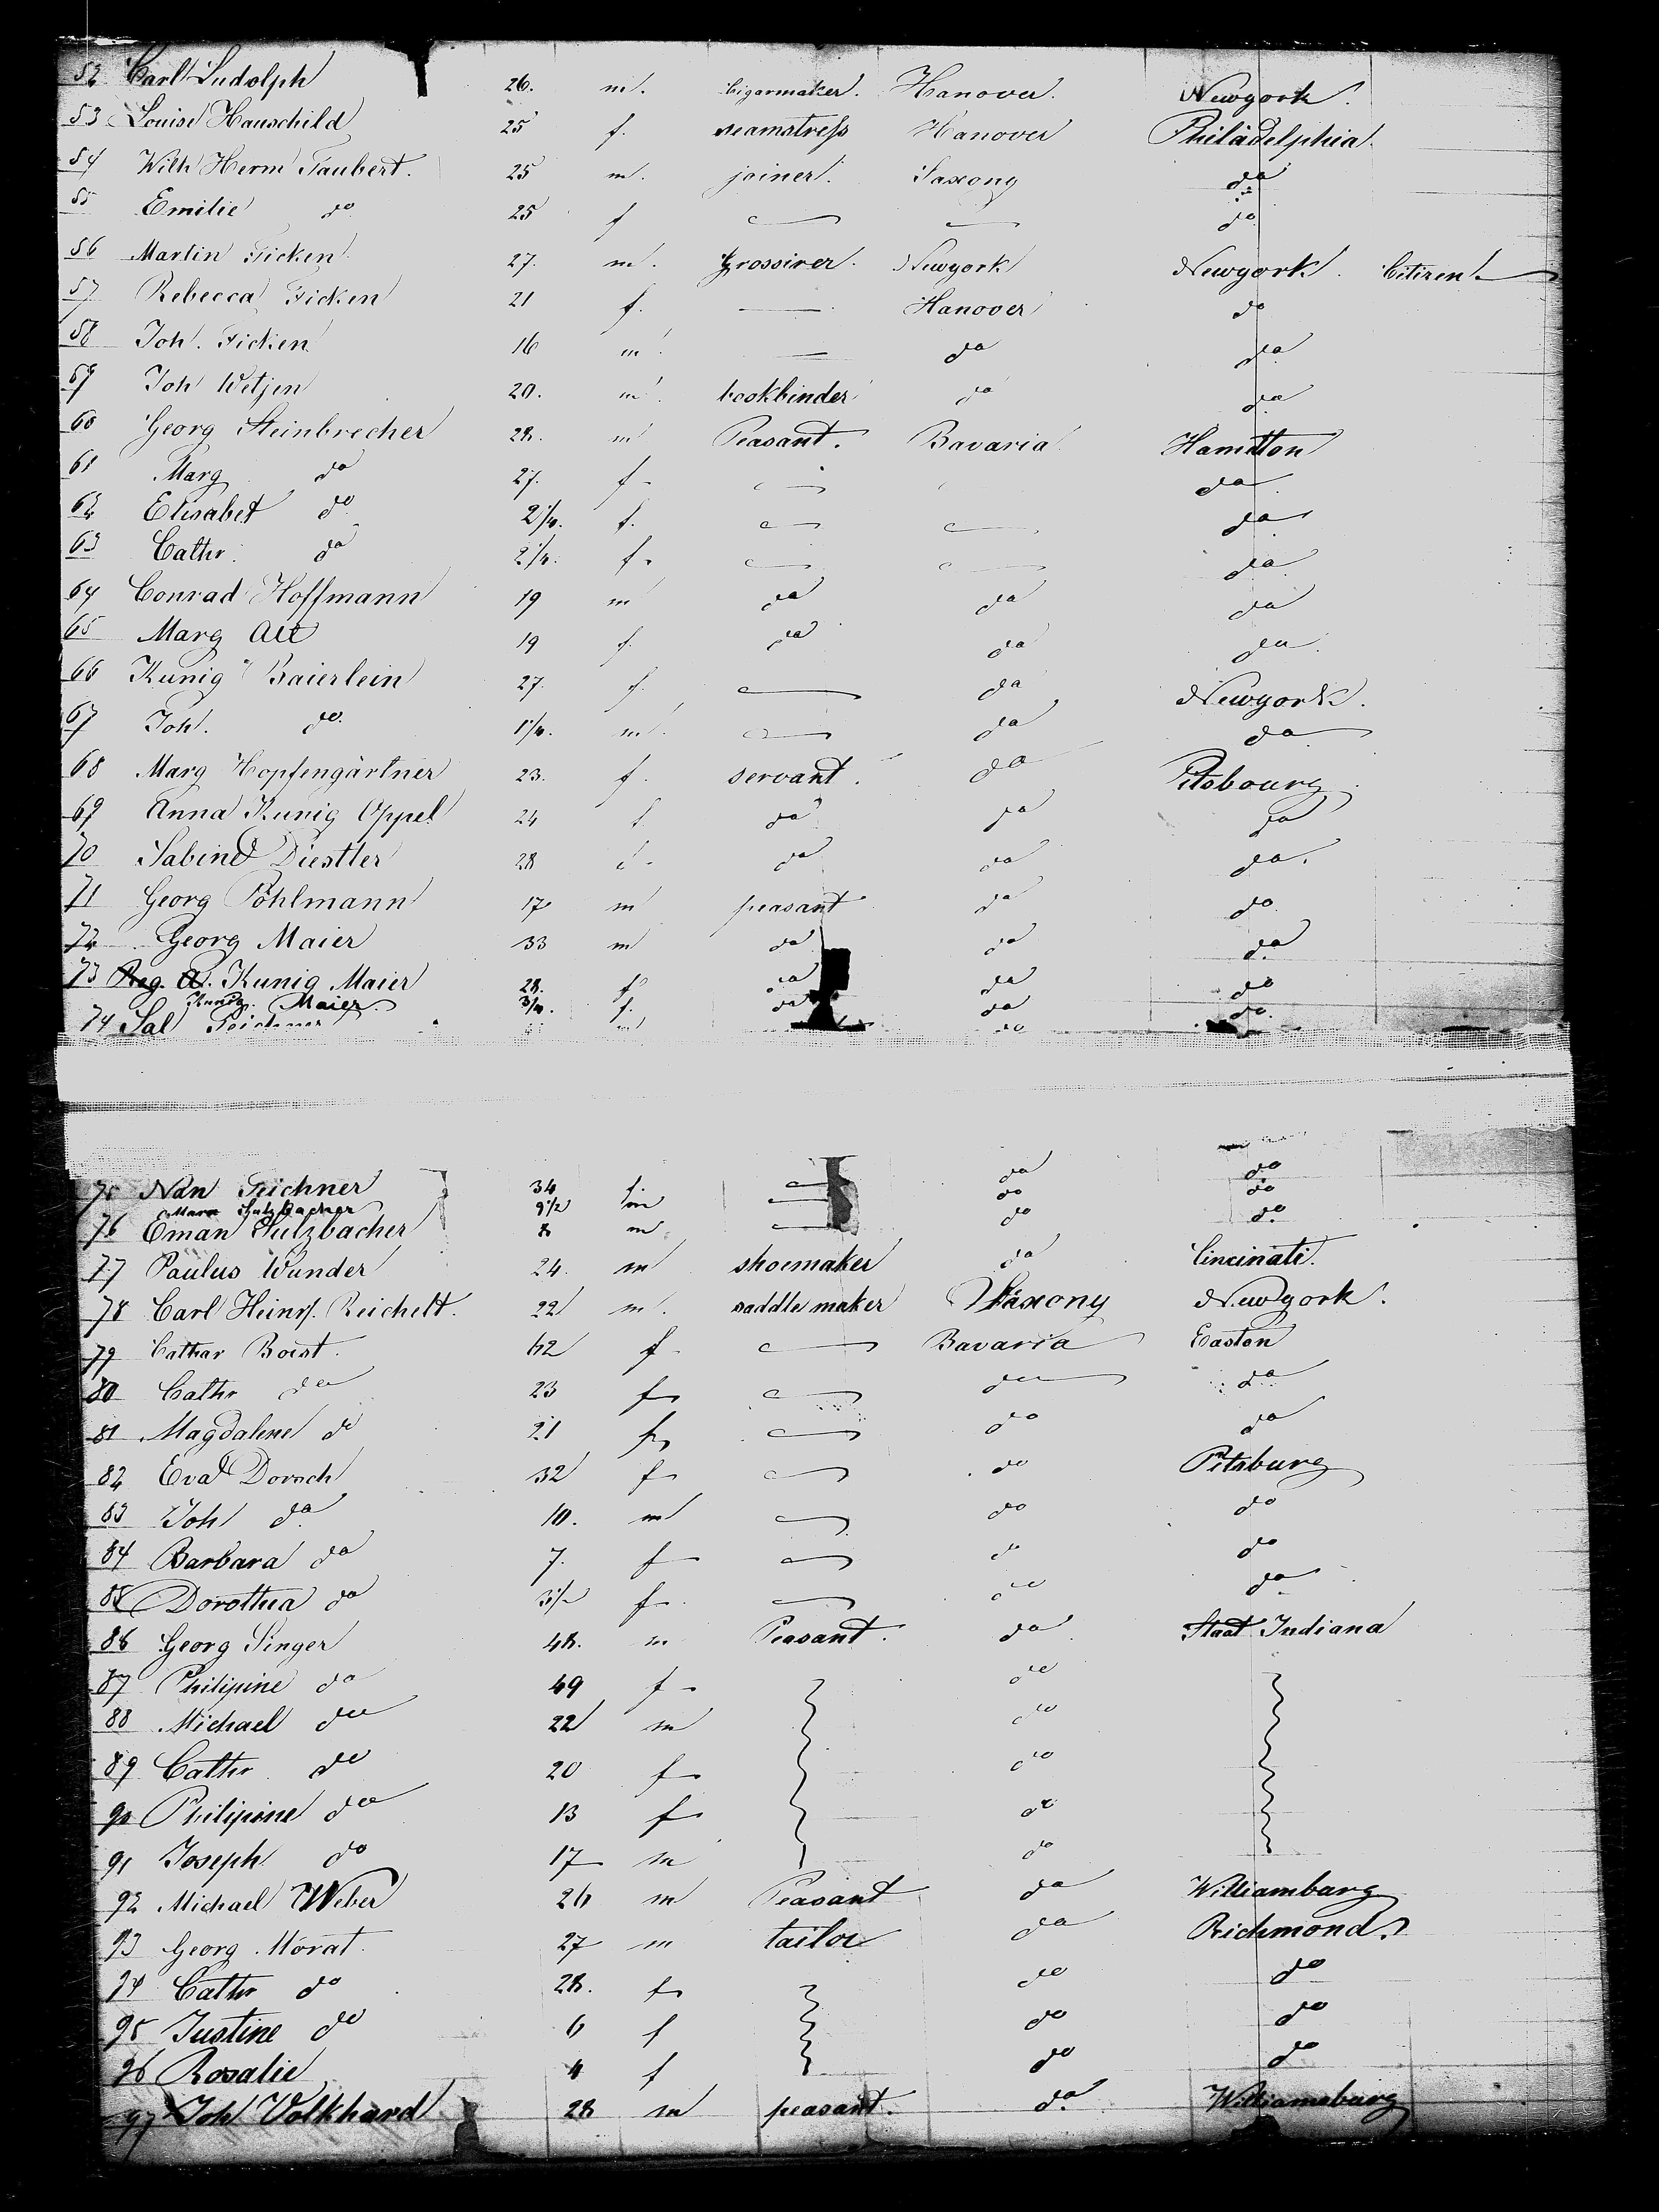 52 Carl Ludolph 26. m. Cigarmaker. Hanover. Newyork.
53 Louise Hauschild 25 f. seamstress Hanover Philadelphia.
54 Wilh Herm Taubert. 25 m. joiner. Saxony do
55 Emilie do 25 f do
56 Martin Ficken 27. m. Grossirer. Newyork Newyork. Citizen
57 Rebecca Ficken 21 f. Hanover do
58 Joh. Ficken 16 m. do do
59 Joh Wetjen 20. m. bookbinder do do
60 Georg Steinbrecher 28. m Peasant. Bavaria Hamilton
61 Marg do 27. f do
62 Elisabet do f. do
63 Cathr. do f. do
64 Conrad Hoffmann 19 m do do do
65 Marg Alt 19 f. do do do
66 Kunig Baierlein 27. f. do Newyork.
67 Joh. do m. do do
68 Marg Hopfengärtner 23. f. servant. do Pitsbourg
69 Anna Kunig Oppel 24 f do do do
70 Sabine Diestler 28 f do do do.
71 Georg Pöhlmann 17 m peasant do do
72 Georg Maier 33 m do do do
73 Kunig Maier 28. f do do do
Kunig. Maier. f. do do do
74 Sal Teichner m do
75 Nan Teichner 34 f. do do
Sulzbacher 9 1/2 m do do
76 Eman Sulzbacher 8 m do do
77 Paulus Wunder 24. m shoemaker do Cincinati.
78 Carl Heinr. Reichelt. 22 m. saddle maker Saxony Newyork.
79 Cathar Boist. 62 f Bavaria Easton
80 Cathr do 23 f do do
81 Magdalene do 21 f do do
82 Eva Dorsch 32 f do Pitsburg
83 Joh do 10. m do do
84 Barbara do 7. f do do
85 Dorothea do f do do
86 Georg Singer 48. m Peasant. do Staat Indiana
87 Philipine do 49 f do
88 Michael do 22 m do
89 Cathr do 20 f do
90 Philipine do 13 f do
91 Joseph do 17 m do
92 Michael Weber 26 m Peasant do Williamburg
93 Georg Morat. 27 m tailor do Richmond.
94 Cathr do 28. f do do
95 Justine do 6 f do do
96 Rosalie 4 f do do
97 Joh Volkhard 28 m peasant. do. Williamsburg